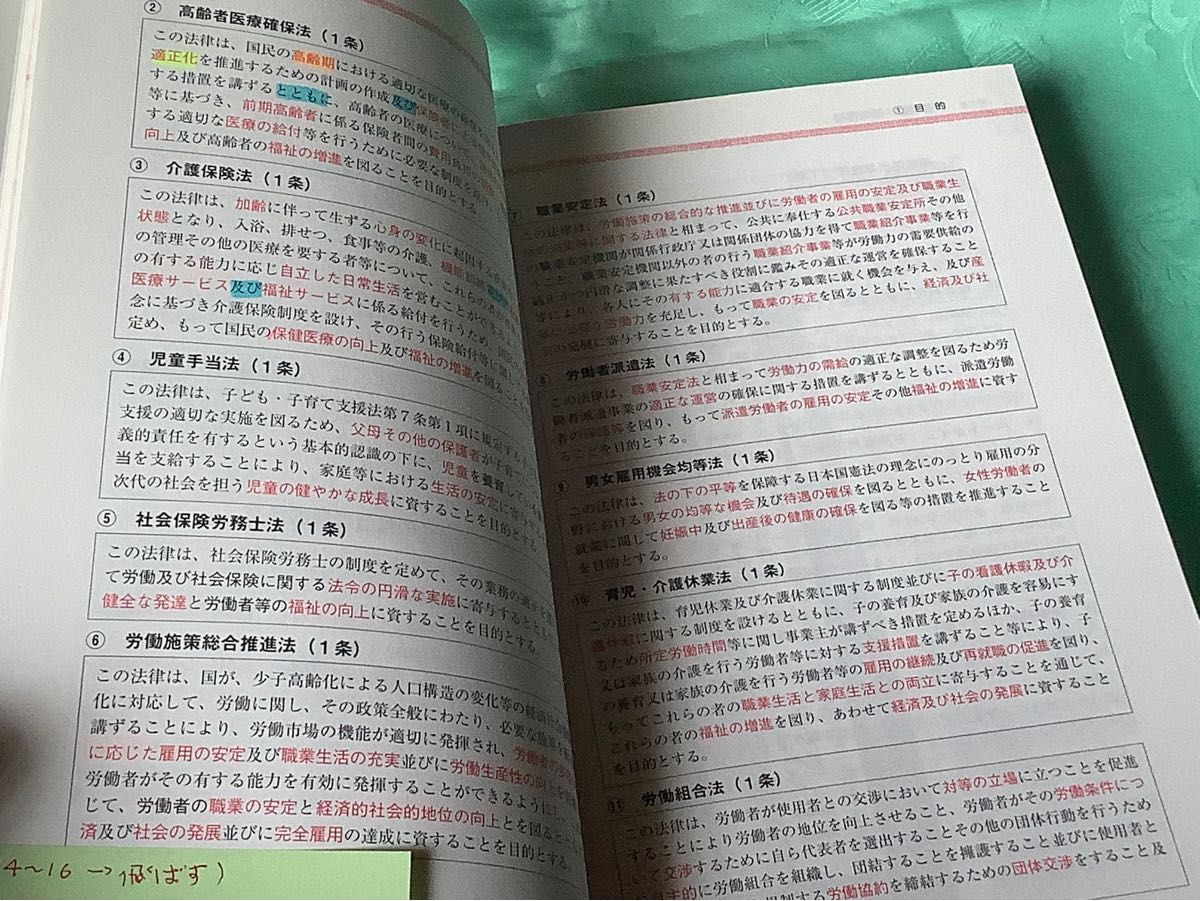 ② 高齢者医療確保法（1条）
この法律は、国民の高齢期における適切な医療の
適正化を推進するための計画の作成及び保険者による
する措置を講ずるとともに、高齢者の医療について、
等に基づき、前期高齢者に係る保険者間の費用負担の
する適切な医療の給付等を行うために必要な制度を
向上及び高齢者の福祉の増進を図ることを目的とする。
③ 介護保険法（1条）
この法律は、加齢に伴って生ずる心身の変化に起因する
状態となり、入浴、排せつ、食事等の介護、機能訓練
の管理その他の医療を要する者等について、これらの
の有する能力に応じ自立した日常生活を営むことができる
医療サービス及び福祉サービスに係る給付を行うため、国民
念に基づき介護保険制度を設け、その行う保険給付等に関
定め、もって国民の保健医療の向上及び福祉の増進を図る
④ 児童手当法（1条）
この法律は、子ども・子育て支援法第7条第1項に規定する
支援の適切な実施を図るため、父母その他の保護者が子育て
義的責任を有するという基本的認識の下に、児童を養育している
当を支給することにより、家庭等における生活の安定に寄与
次代の社会を担う児童の健やかな成長に資することを目的とする
⑤ 社会保険労務士法（1条）
この法律は、社会保険労務士の制度を定めて、その業務の適正を
て労働及び社会保険に関する法令の円滑な実施に寄与するととも
健全な発達と労働者等の福祉の向上に資することを目的とする
⑥ 労働施策総合推進法（1条）
この法律は、国が、少子高齢化による人口構造の変化等の経済社
化に対応して、労働に関し、その政策全般にわたり、必要な施策を
講ずることにより、労働市場の機能が適切に発揮され、労働者の
に応じた雇用の安定及び職業生活の充実並びに労働生産性の向上を
労働者がその有する能力を有効に発揮することができるように
じて、労働者の職業の安定と経済的社会的地位の向上とを図るとと
済及び社会の発展並びに完全雇用の達成に資することを目的
4～16 → 飛ばす）
① 目 的
7 職業安定法（1条）
この法律は、労働施策の総合的な推進並びに労働者の雇用の安定及び職業生
活の充実等に関する法律と相まって、公共に奉仕する公共職業安定所その他
の職業安定機関が関係行政庁又は関係団体の協力を得て職業紹介事業等を行
うこと、職業安定機関以外の者の行う職業紹介事業等が労働力の需要供給の
適正かつ円滑な調整に果たすべき役割に鑑みその適正な運営を確保すること
等により、各人にその有する能力に適合する職業に就く機会を与え、及び産
業に必要な労働力を充足し、もって職業の安定を図るとともに、経済及び社
会の発展に寄与することを目的とする。
8 労働者派遣法（1条）
この法律は、職業安定法と相まって労働力の需給の適正な調整を図るため労
働者派遣事業の適正な運営の確保に関する措置を講ずるとともに、派遣労働
者の保護等を図り、もって派遣労働者の雇用の安定その他福祉の増進に資す
ることを目的とする。
9 男女雇用機会均等法（1条）
この法律は、法の下の平等を保障する日本国憲法の理念にのっとり雇用の分
野における男女の均等な機会及び待遇の確保を図るとともに、女性労働者の
就業に関して妊娠中及び出産後の健康の確保を図る等の措置を推進すること
を目的とする。
10 育児・介護休業法（1条）
この法律は、育児休業及び介護休業に関する制度並びに子の看護休暇及び介
護休暇に関する制度を設けるとともに、子の養育及び家族の介護を容易にす
るため所定労働時間等に関し事業主が講ずべき措置を定めるほか、子の養育
又は家族の介護を行う労働者等に対する支援措置を講ずること等により、子
の養育又は家族の介護を行う労働者等の雇用の継続及び再就職の促進を図り、
もってこれらの者の職業生活と家庭生活との両立に寄与することを通じて、
これらの者の福祉の増進を図り、あわせて経済及び社会の発展に資すること
を目的とする。
11 労働組合法（1条）
この法律は、労働者が使用者との交渉において対等の立場に立つことを促進
することにより労働者の地位を向上させること、労働者がその労働条件につ
いて交渉するために自ら代表者を選出することその他の団体行動を行うため
自主的に労働組合を組織し、団結することを擁護すること並びに使用者と
規制する労働協約を締結するための団体交渉をすること及